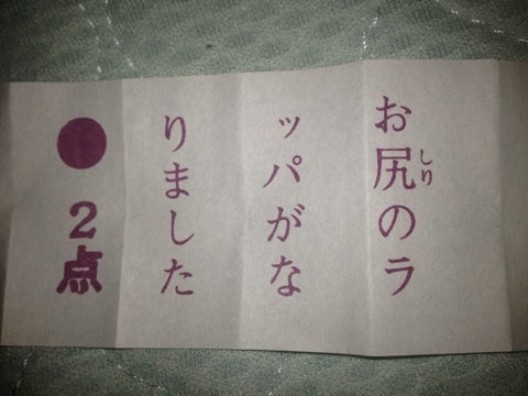 お尻のラ
しり
ッパがな
りました
●2点